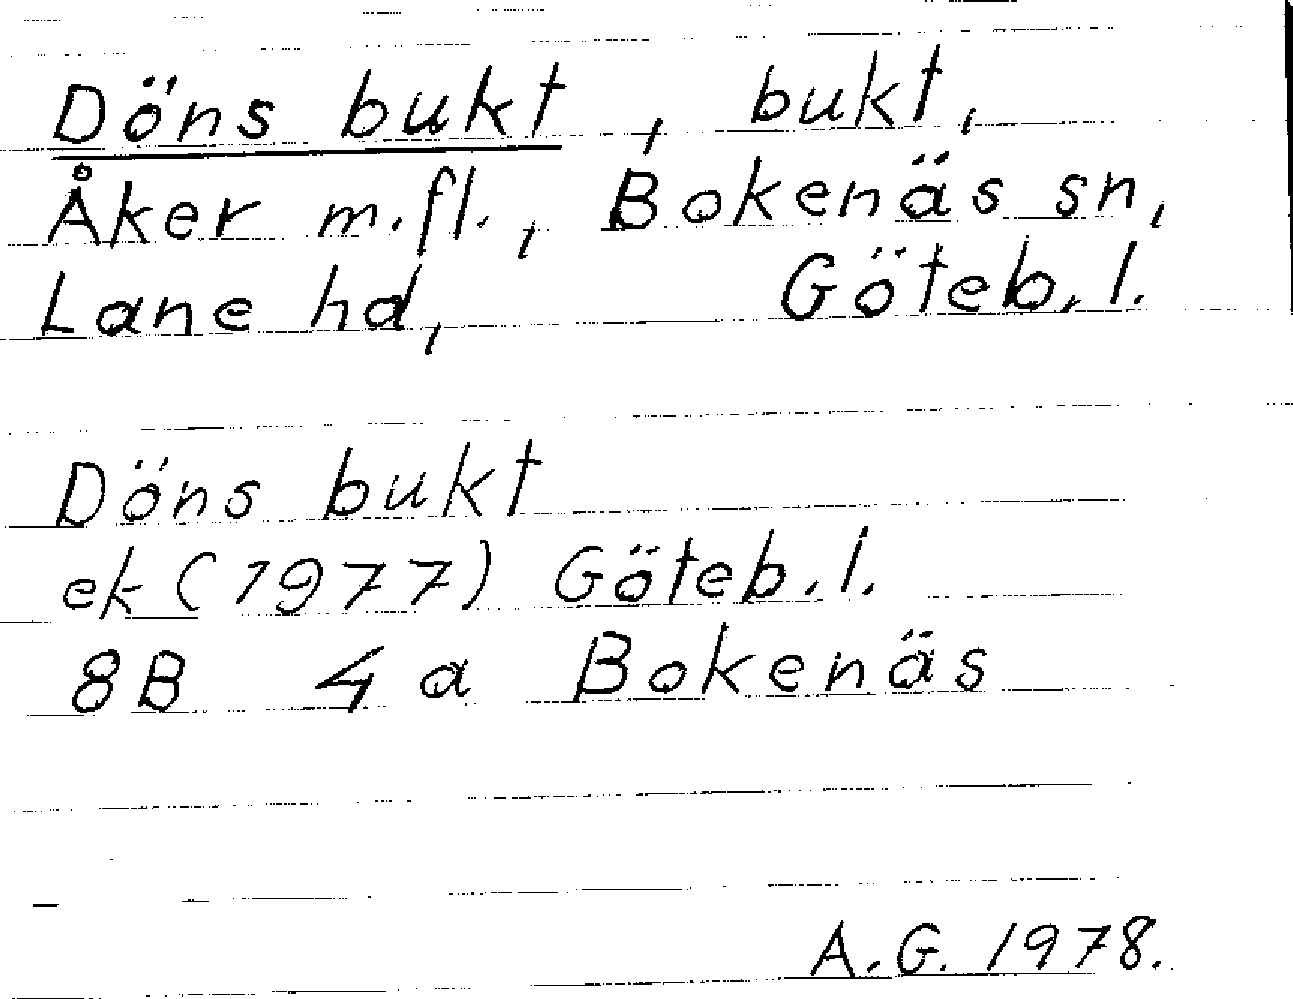 Döns bukt, bukt,
Åker m.fl., Bokenäs sn,
Lane hd, Göteb.l.
Döns bukt
ek (1977) Göteb.l.
8B 4a Bokenäs
A.G. 1978.